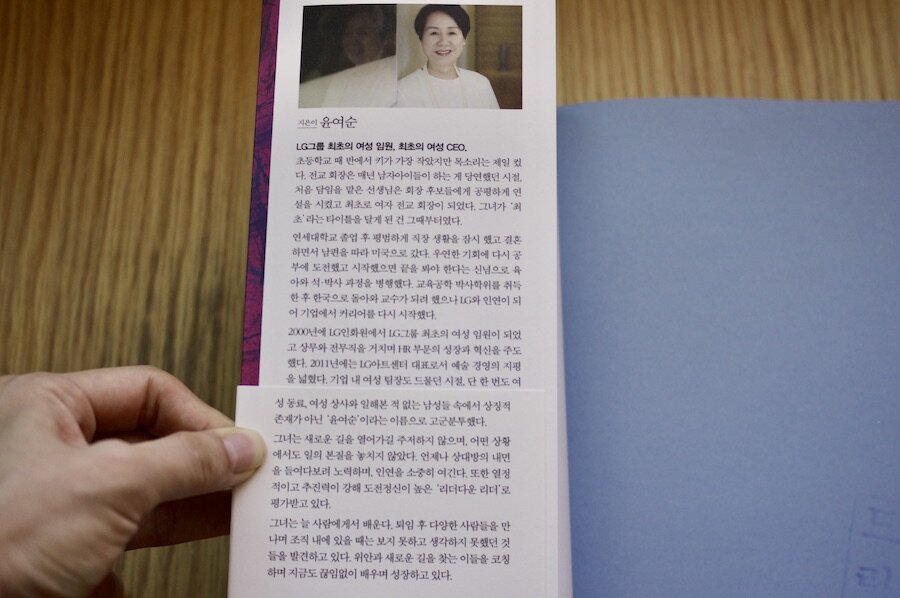 지은이 윤여순
LG그룹 최초의 여성 임원, 최초의 여성 CEO.
초등학교 때 반에서 키가 가장 작았지만 목소리는 제일 컸
다. 전교 회장은 매년 남자아이들이 하는 게 당연했던 시절,
처음 담임을 맡은 선생님은 회장 후보들에게 공평하게 연
설을 시켰고 최초로 여자 전교 회장이 되었다. 그녀가 ‘최
초’라는 타이틀을 달게 된 건 그때부터였다.
연세대학교 졸업 후 평범하게 직장 생활을 잠시 했고 결혼
하면서 남편을 따라 미국으로 갔다. 우연한 기회에 다시 공
부에 도전했고 시작했으면 끝을 봐야 한다는 신념으로 육
아와 석·박사 과정을 병행했다. 교육공학 박사학위를 취득
한 후 한국으로 돌아와 교수가 되려 했으나 LG와 인연이 되
어 기업에서 커리어를 다시 시작했다.
2000년에 LG인화원에서 LG그룹 최초의 여성 임원이 되었
고 상무와 전무직을 거치며 HR 부문의 성장과 혁신을 주도
했다. 2011년에는 LG아트센터 대표로서 예술 경영의 지평
을 넓혔다. 기업 내 여성 팀장도 드물던 시절, 단 한 번도 여
성 동료, 여성 상사와 일해본 적 없는 남성들 속에서 상징적
존재가 아닌 ‘윤여순’이라는 이름으로 고군분투했다.
그녀는 새로운 길을 열어가길 주저하지 않으며, 어떤 상황
에서도 일의 본질을 놓치지 않았다. 언제나 상대방의 내면
을 들여다보려 노력하며, 인연을 소중히 여긴다. 또한 열정
적이고 추진력이 강해 도전정신이 높은 ‘리더다운 리더’로
평가받고 있다.
그녀는 늘 사람에게서 배운다. 퇴임 후 다양한 사람들을 만
나며 조직 내에 있을 때는 보지 못하고 생각하지 못했던 것
들을 발견하고 있다. 위안과 새로운 길을 찾는 이들을 코칭
하며 지금도 끊임없이 배우며 성장하고 있다.